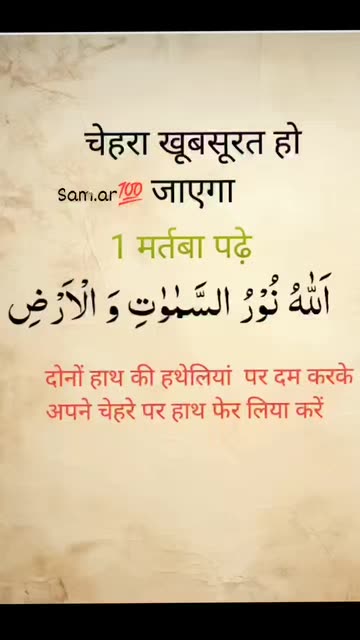 चेहरा खूबसूरत हो
Sam.ar💯 जाएगा
1 मर्तबा पढ़े
اَللّٰهُ نُوْرُ السَّمٰوٰتِ وَ الْاَرْضِ
दोनों हाथ की हथेलियां पर दम करके
अपने चेहरे पर हाथ फेर लिया करें